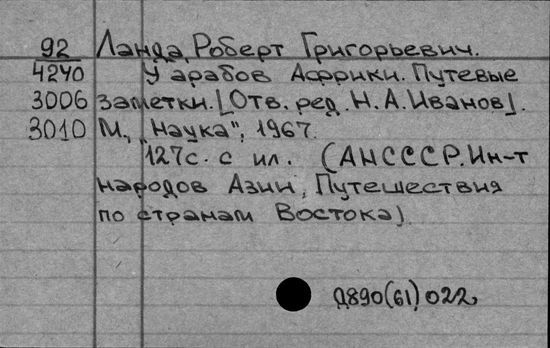 92 Ланда, Роберт Григорьевич.
4240 У арабов Африки. Путевые
3006 заметки. [Отв. ред. Н. А. Иванов].
3010 М., "Наука", 1967.
127с. с ил. (АН СССР. Ин-т
народов Азии, Путешествия
по странам Востока)
Д890(61)022